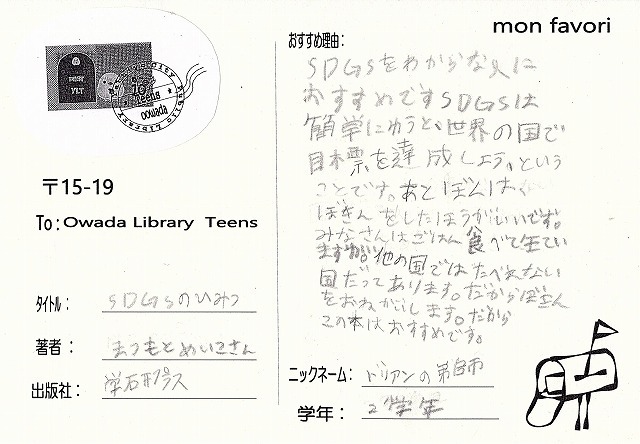 mon favori
POST
YLT
Teens
〒15-19
To: Owada Library Teens
タイトル： SDGSのひみつ
著者： まつもとめいこさん
出版社： 学研プラス
おすすめ理由：
SDGSをわからな人に
おすすめですSDGSは
簡単にゆうと、世界の国で
目標を達成しよう、という
ことです。あと
ぼきんをしたほうがいいです。
みなさんはごはん食べて生てい
ますが。他の国ではたべれない
国だってあります。だからぼきん
をおねがいします。だから
この本はおすすめです。
ニックネーム： ドリアンの
学年： 2学年